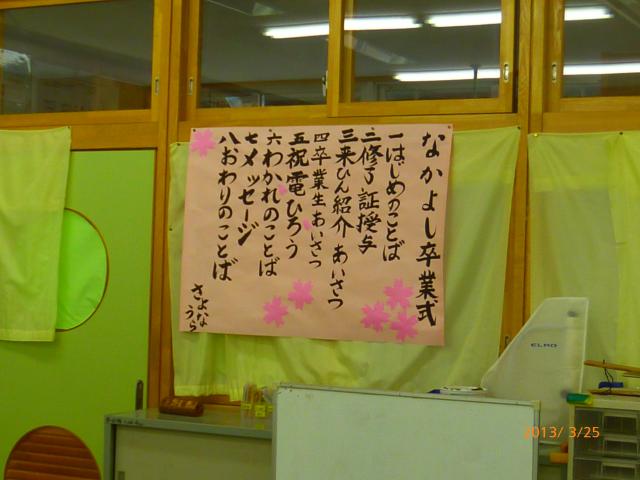 なかよし卒業式
一はじめのことば
二修了証授与
三来ひん紹介あいさつ
四卒業生あいさつ
五祝電ひろう
六わかれのことば
七メッセージ
八おわりのことば
さよなら
うら
ELMO
2013/ 3/25